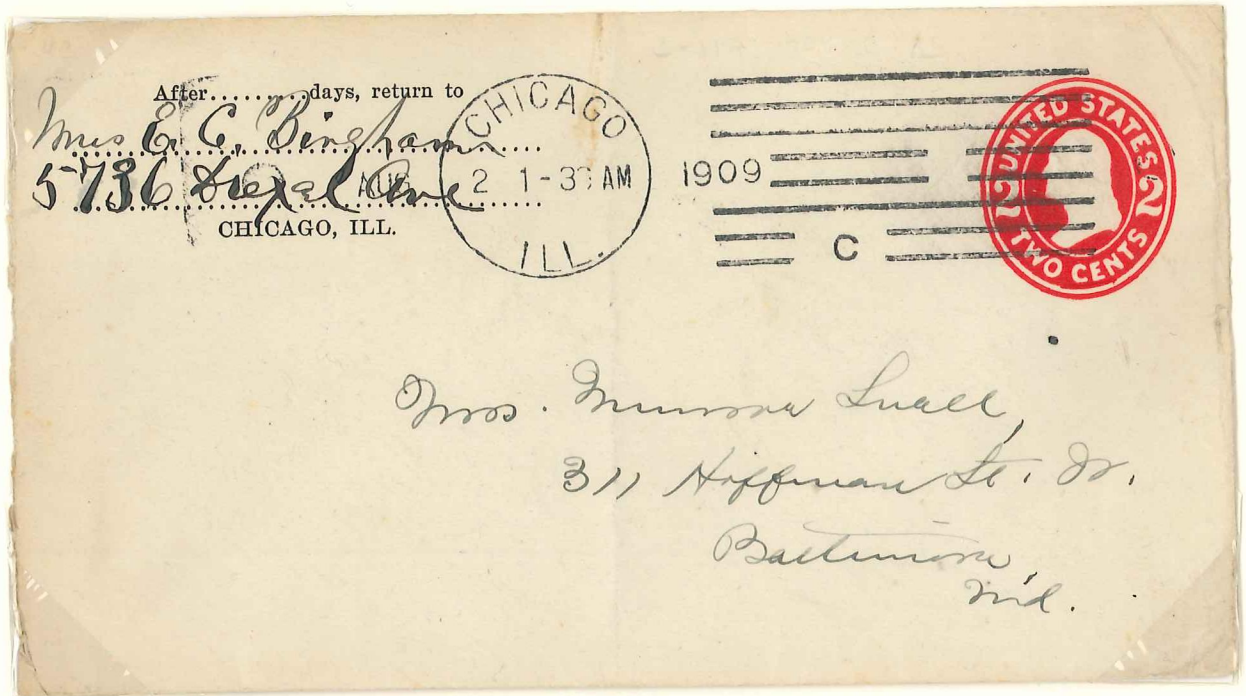 After.........days, return to
Mrs E. C. Bingham
5736 Drexel Ave
CHICAGO, ILL.
CHICAGO
AUG 2 1-30 AM
ILL.
1909
C
UNITED STATES
2 2
TWO CENTS
Mrs. Munroe Snell,
311 Hoffman St. W.
Baltimore,
Md.